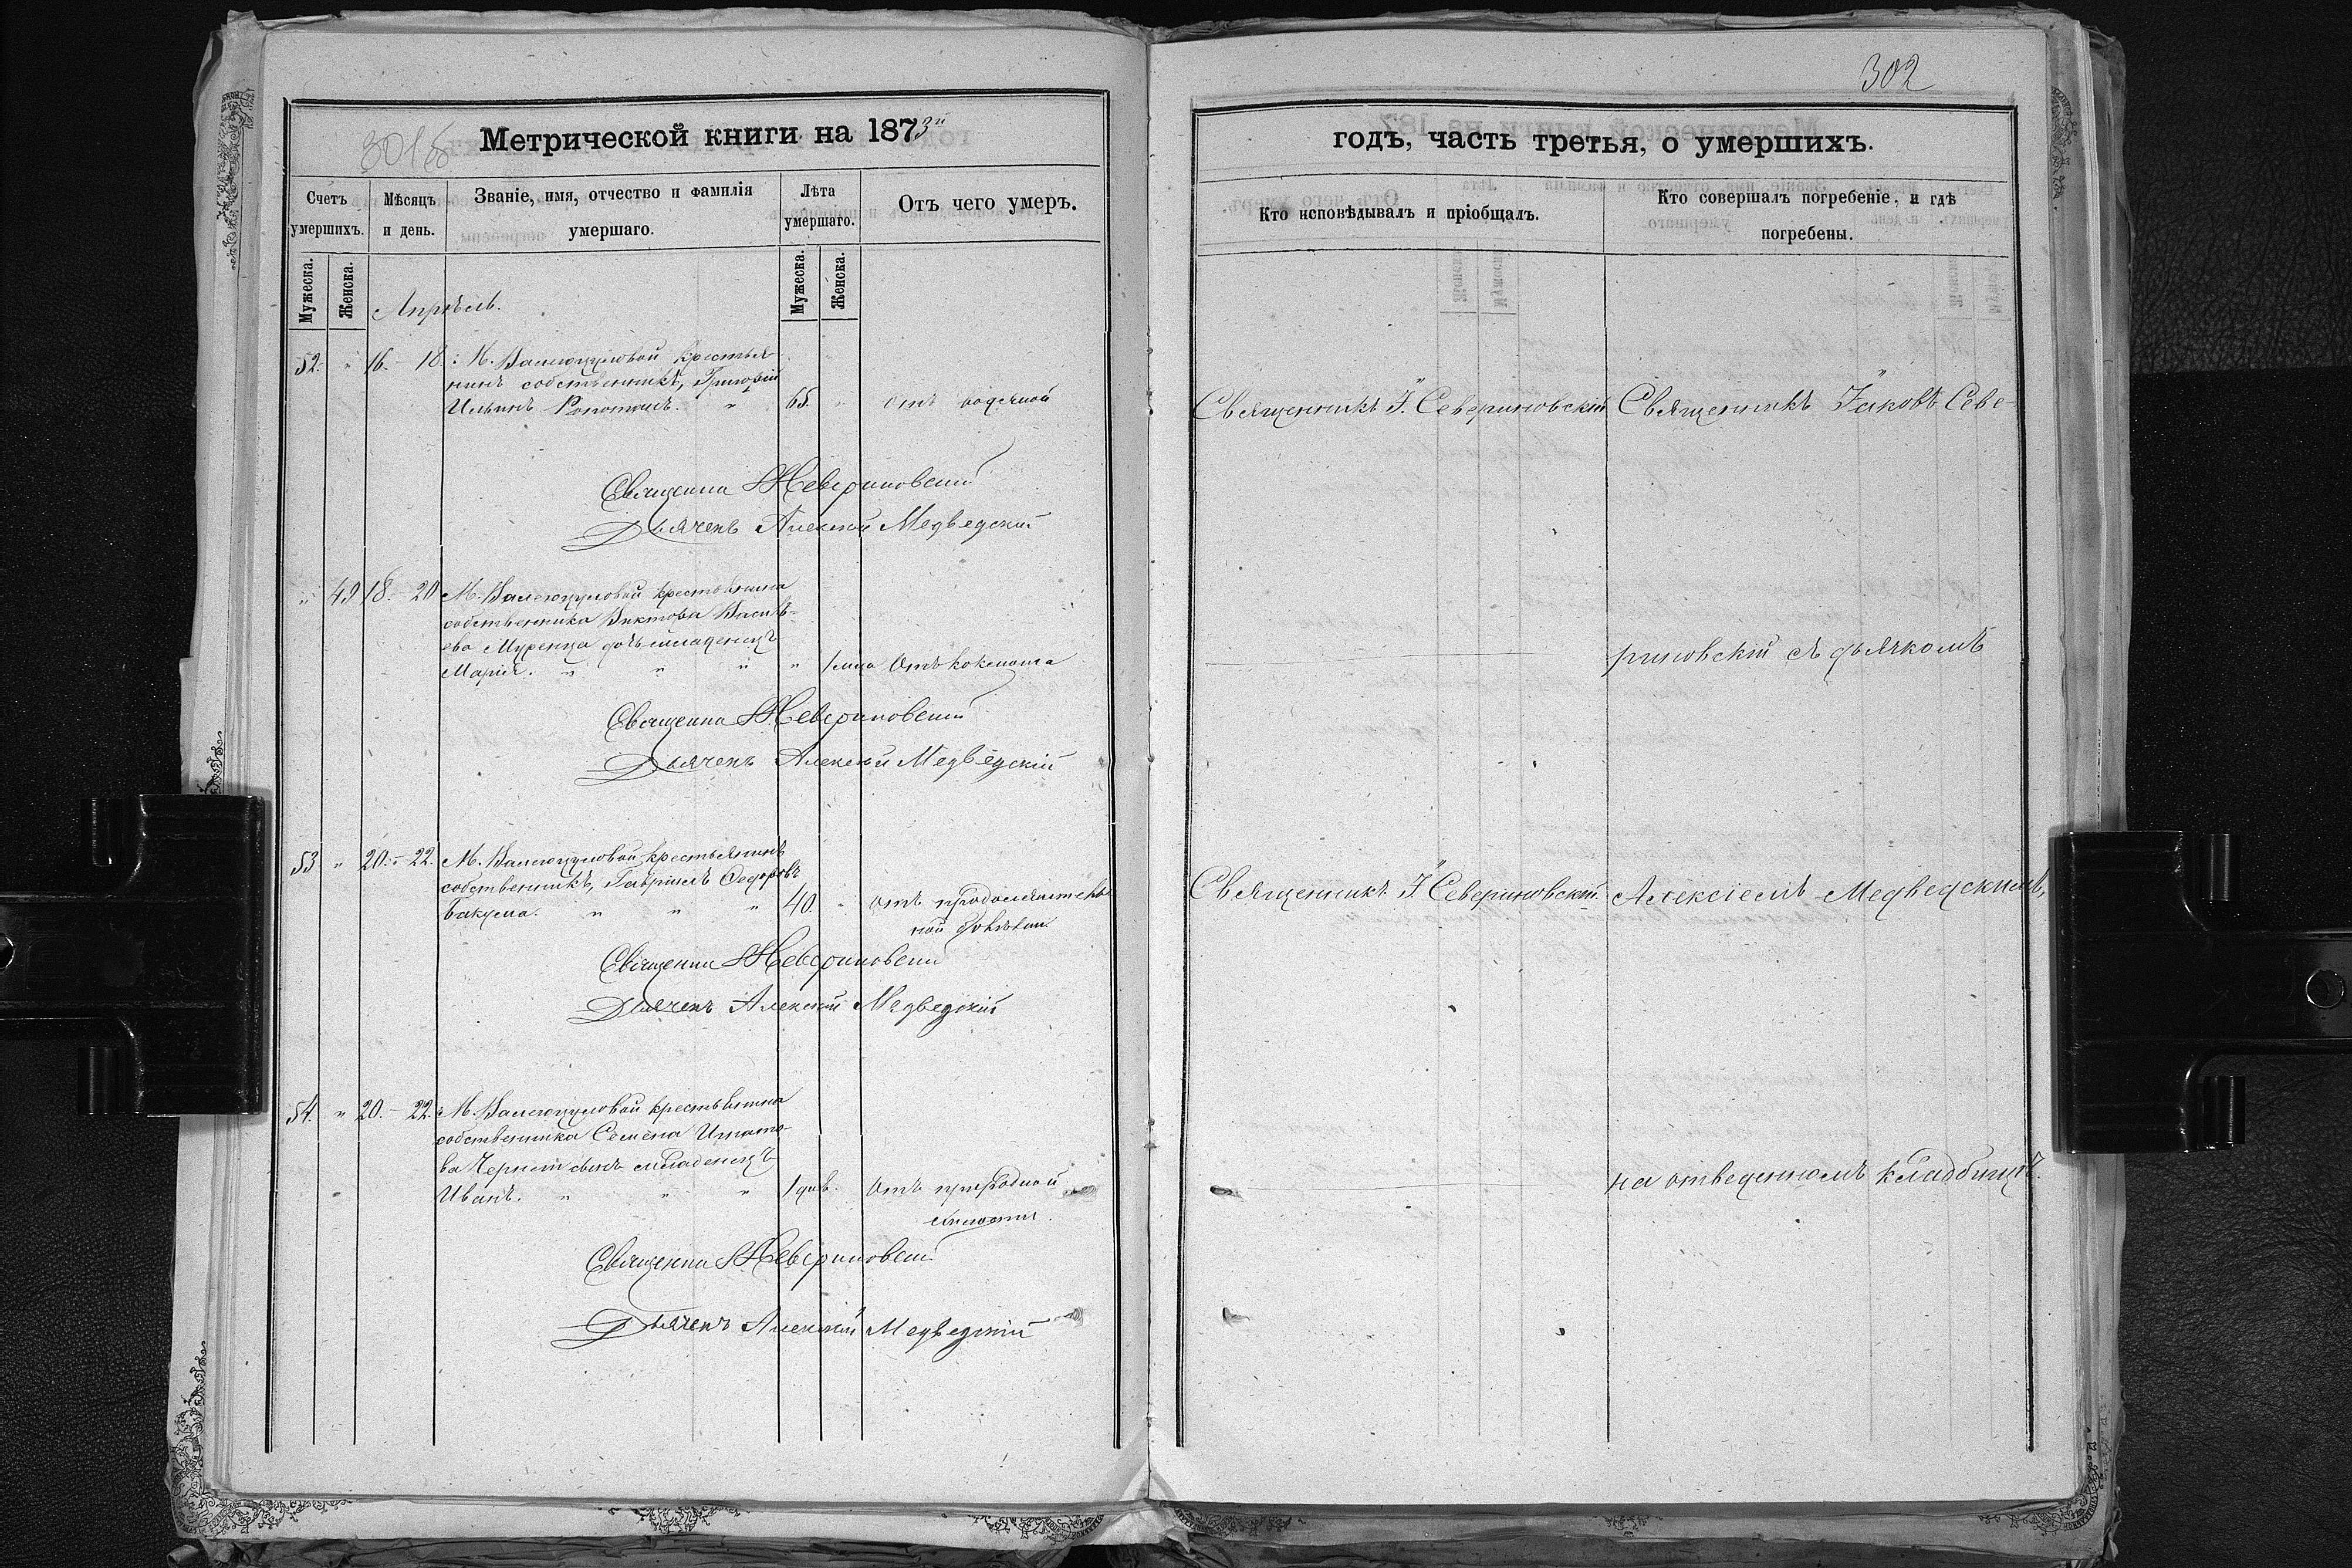 302
301б
Метрической книги на 1873й
годъ, часть третья, о умершихъ.
Счетъ умершихъ.
Мѣсяцъ и день.
Званіе, имя, отчество и фамилія умершаго.
Лѣта умершаго.
Отъ чего умеръ.
Кто исповѣдывалъ и пріобщалъ.
Кто совершалъ погребеніе, и гдѣ погребены.
Мужеска.
Женска.
Мужеска.
Женска.
Апрѣль.
52. " 16. - 18. М. Валегоцуловой крестья
нинъ собственникъ, Григорій
Ильинъ " 65. " отъ водяной
Священникъ І. Севериновскій Священникъ Іаковъ Севе-
Священни Севериновскій
Дьячекъ Алексій Медведскій
" 49 18. - 20 М. Валегоцуловой крестьянина
собственника Виктора Василь-
ева Муренка дочь младенецъ
Марія. " " " " 1 мца Отъ коклюша
риновскій съ дьячкомъ
Священни Севериновскій
Дьячекъ Алексій Медведскій
53 " 20. - 22. М. Валегоцуловой крестьянинъ
собственникъ, Гавріилъ Федоровъ
Бакума. " " " 40. " отъ продолжитель
ной болѣзни.
Священникъ І. Севериновскій. Алексіемъ Медведскимъ,
Священни Севериновскій
Дьячекъ Алексій Медведскій
54. " 20. - 22. М. Валегоцуловой крестьянина
собственника Семена Игнато-
ва сынъ младенецъ
Иванъ. " " " 1 днв. отъ природной
слабости.
на отведенномъ кладбищѣ.
Священни Севериновскій
Дьячекъ Алексій Медведскій